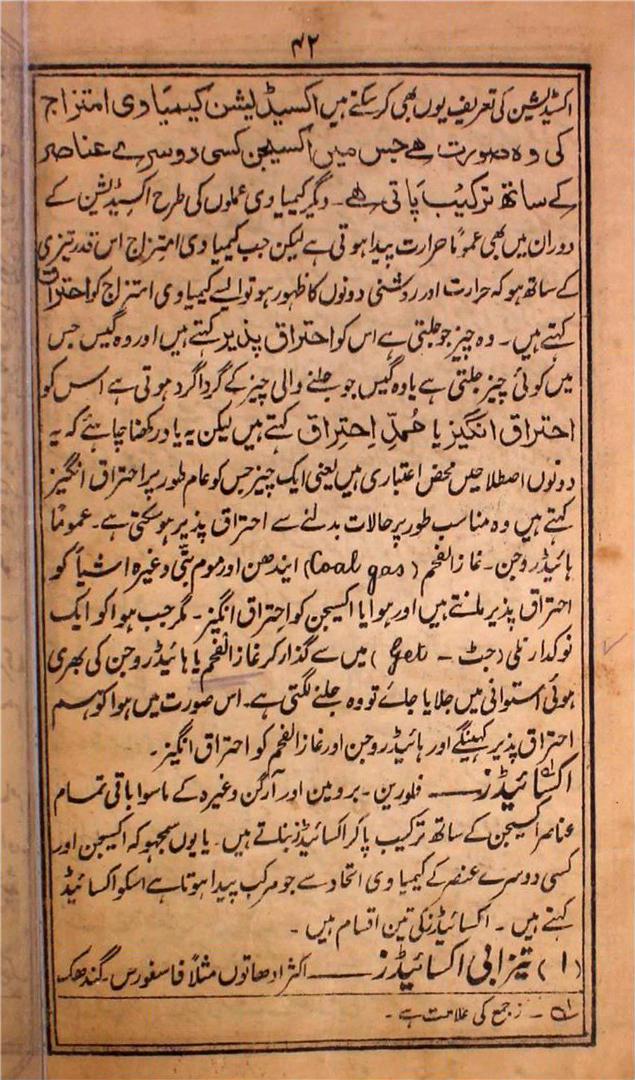 ۴۲
اکسڈیشن کی تعریف یوں بھی کر سکتے ہیں اکسیڈیشن کیمیاوی امتزاج
کی وہ صورت ہے جس میں اکسیجن کسی دوسرے عناصر
کے ساتھ ترکیب پاتی ہے۔ دیگر کیمیاوی عملوں کی طرح اکسیڈیشن کے
دوران میں بھی عموماً حرارت پیدا ہوتی ہے لیکن جب کیمیاوی امتزاج اس قدر تیزی
کے ساتھ ہو کہ حرارت اور روشنی دونوں کا ظہور ہو تو ایسے کیمیاوی امتزاج کو احتراق
کہتے ہیں۔ وہ چیز جو جلتی ہے اس کو احتراق پذیر کہتے ہیں اور وہ گیس جس
میں کوئی چیز جلتی ہے یا وہ گیس جو جلنے والی چیز کے گرداگرد ہوتی ہے اس کو
احتراق انگیز یا مُمدِّ اِحتِراق کہتے ہیں لیکن یہ یاد رکھنا چاہئے کہ یہ
دونوں اصطلاحیں محض اعتباری ہیں یعنی ایک چیز جس کو عام طور پر احتراق انگیز
کہتے ہیں وہ مناسب طور پر حالات بدلنے سے احتراق پذیر ہو سکتی ہے۔ عموماً
ہائیڈروجن۔ غاز الفحم (Coal gas) ایندھن اور موم بتّی وغیرہ اشیأ کو
احتراق پذیر مانتے ہیں اور ہوا یا اکسیجن کو احتراق انگیز۔ مگر جب ہوا کو ایک
نوکدار نلی (جٹ - Jet) میں سے گذار کر غاز الفحم یا ہائیڈروجن کی بھری
ہوئی استوانی میں جلایا جائے تو وہ جلنے لگتی ہے۔ اس صورت میں ہوا کو ہم
احتراق پذیر کہینگے اور ہائیڈروجن اور غاز الفحم کو احتراق انگیز۔
اکسائیڈز ـــــ فلورین۔ برومین اور آرگن وغیرہ کے ماسوا باقی تمام
عناصر اکسیجن کے ساتھ ترکیب پاکر اکسائیڈز بناتے ہیں۔ یا یوں سمجھو کہ اکسیجن اور
کسی دوسرے عنصر کے کیمیاوی اتحاد سے جو مرکب پیدا ہوتا ہے اسکو اکسائیڈ
کہتے ہیں۔ اکسائیڈز کی تین اقسام ہیں۔
(۱) تیزابی اکسائیڈز ـــــ اکثر ادھاتوں مثلاً فاسفورس۔ گندھک
۱؎ - ز جمع کی علامت ہے۔